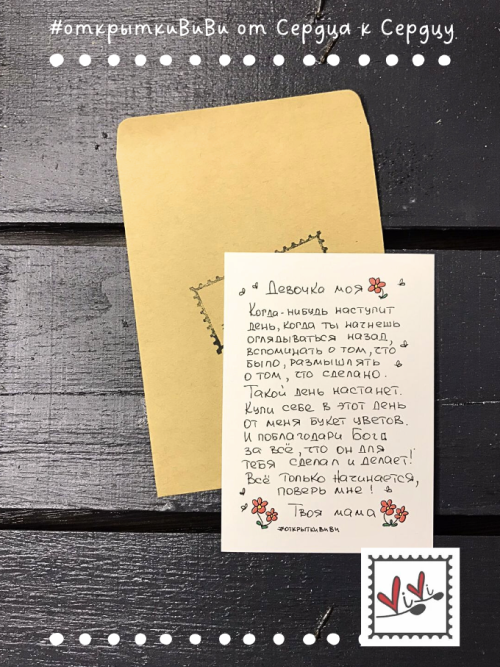 #открыткиВиВи от Сердца к Сердцу
Девочка моя
Когда-нибудь наступит
день, когда ты начнешь
оглядываться назад,
вспоминать о том, что
было, размышлять
о том, что сделано.
Такой день настанет.
Купи себе в этот день
от меня букет цветов.
И поблагодари Бога
за всё, что он для
тебя сделал и делает!
Всё только начинается,
поверь мне!
Твоя мама
#открыткиВиВи
ViVi